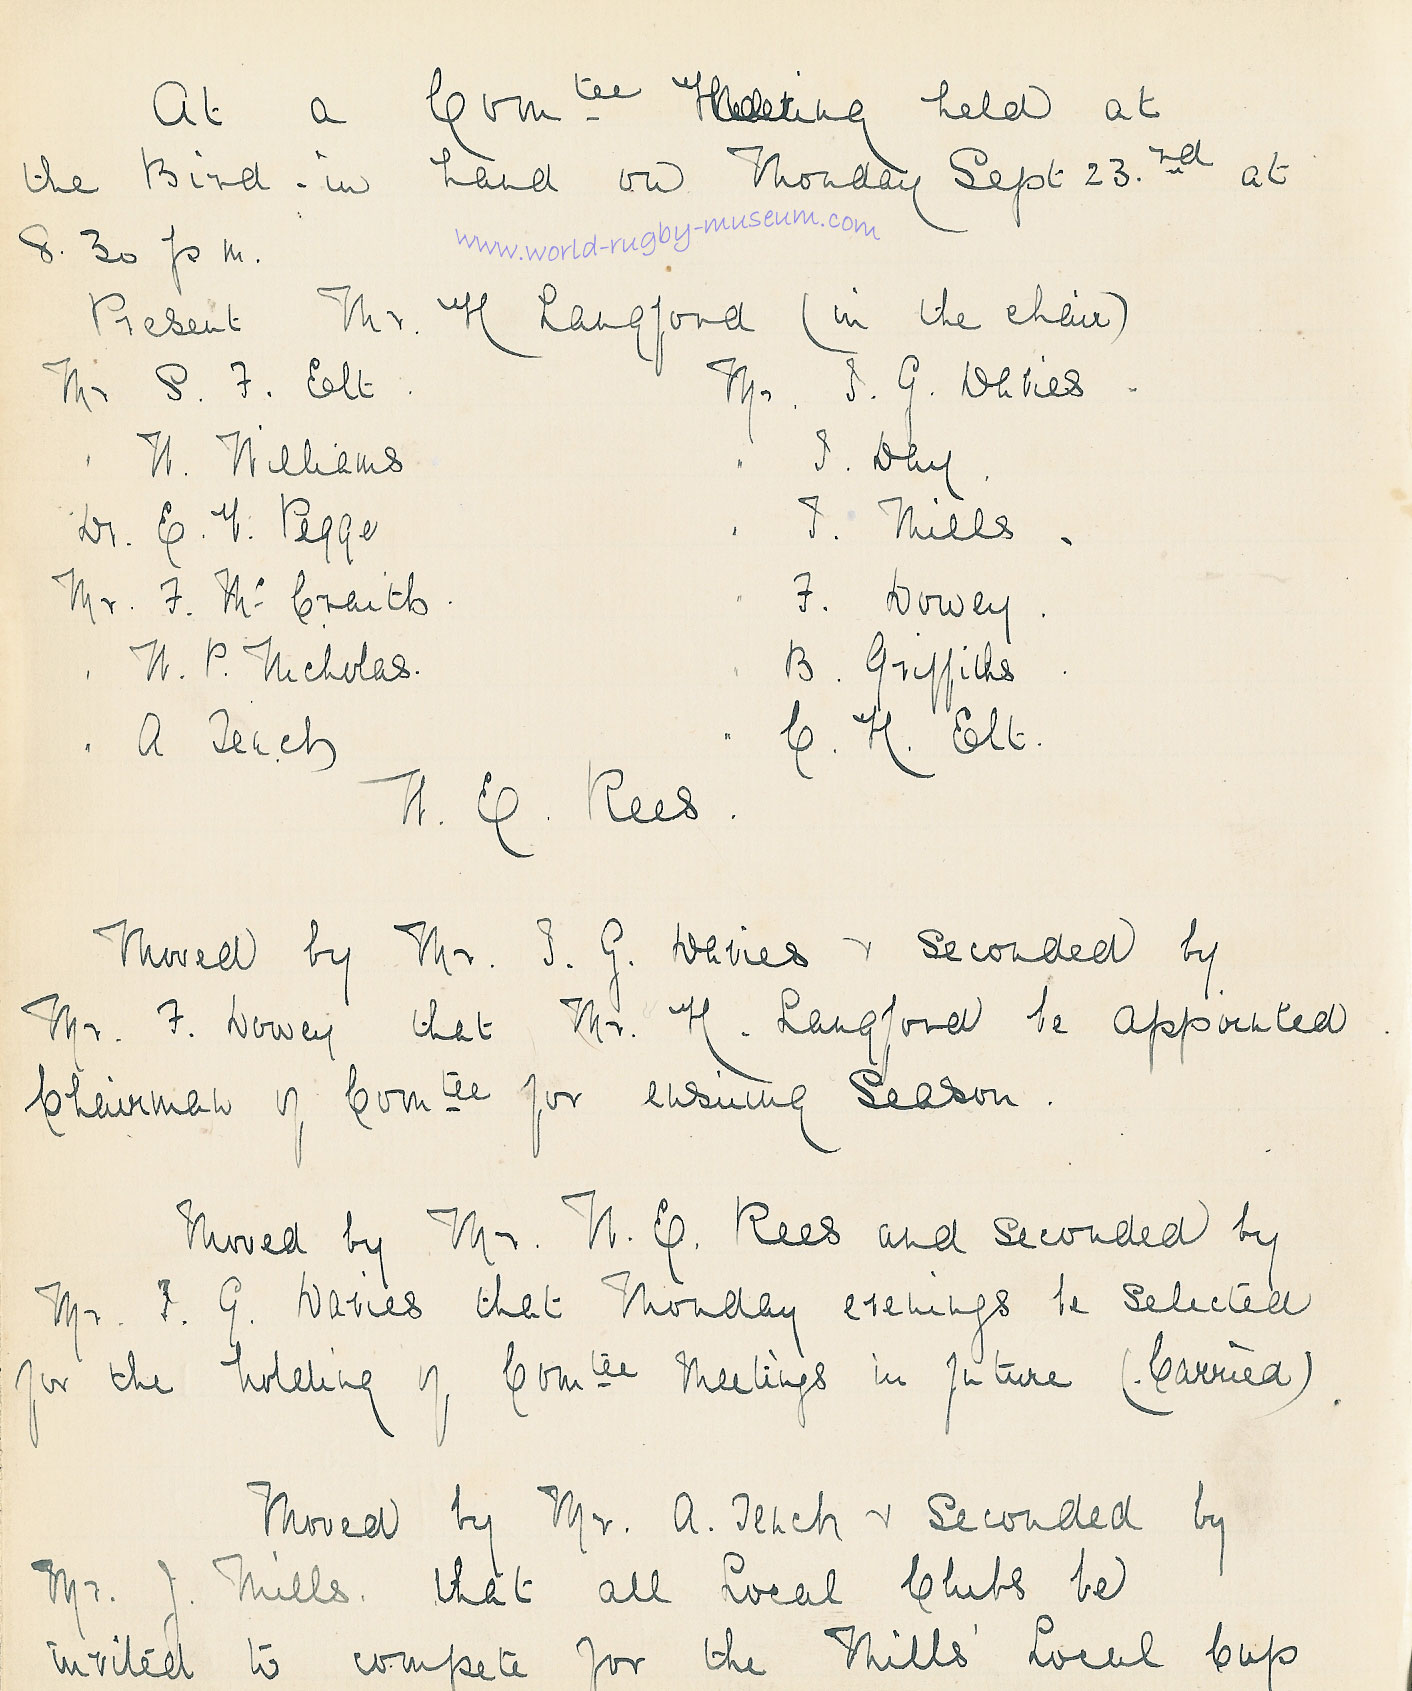 At a Com tee Meeting held at
the Bird-in hand on Monday Sept 23.rd at
8.30 p m.
www.world-rugby-museum.com
Present Mr. H Langford (in the chair)
Mr S. F. Elt. Mr. I. G. Davies
" W. Williams " I. Day
Dr. E. V. Pegge " J. Mills
Mr. F. Mc Craith. " F. Dovey.
" W. P. Nicholas. " B. Griffiths
" A Tench " C. H. Elt.
W. E. Rees.
Moved by Mr. I. G. Davies & seconded by
Mr. F. Dovey that Mr. H. Langford be appointed
Chairman of Com tee for ensuing Season.
Moved by Mr. W. E. Rees and seconded by
Mr. I. G. Davies that Monday evenings be selected
for the holding of Com tee Meetings in future (Carried).
Moved by Mr. A. Tench & seconded by
Mr. J. Mills. that all Local Clubs be
invited to compete for the Mills' Local Cup